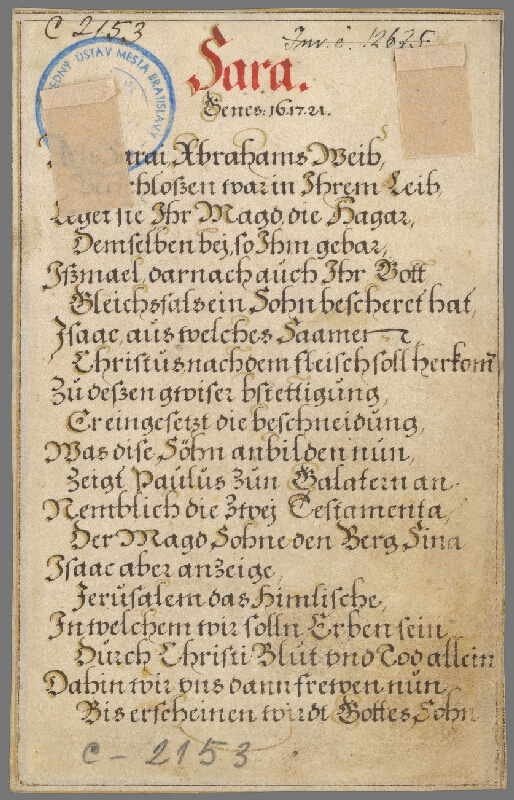 C 2153
Inv. č. 12675
ÚSTAV MESTA BRATISLAVY
Sara.
Genes: 16.17.21.
Abrahams Weib,
schloßen war in Ihrem Leib,
Leget sie Ihr Magd, die Hagar,
Demselben bej, so Ihm gebar,
Ißmael, darnach auch Ihr Gott
Gleichsfals ein Sohn bescheret hat,
Isaac, aus welches Saamen
Christus nach dem fleisch soll herkom̄
Zu deßen gwiser bstettigung,
Er eingesetzt die beschneidung,
Was dise Söhn anbilden nun,
Zeigt Paulus zun Galatern an.
Nemblich die Zwej Testamenta,
Der Magd Sohne den Berg Sina
Isaac aber anzeige,
Jerusalem das Himlische,
In welchem wir solln Erben sein,
Durch Christi Blut vnd Tod allein
Dahin wir vns dann frewen nun,
Bis erscheinen wirdt Gottes Sohn
C - 2153